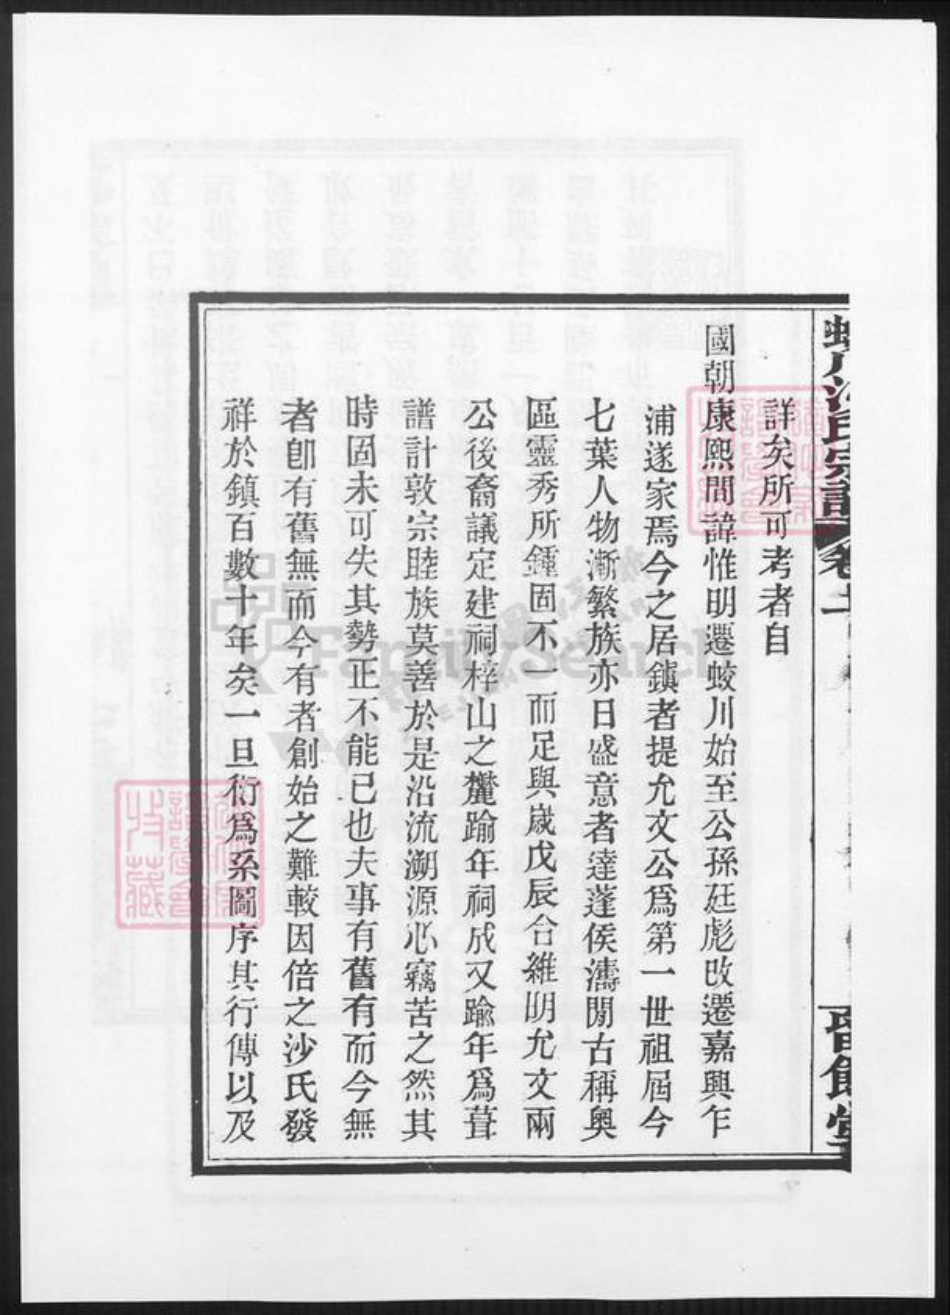 蛟川沙氏宗譜
卷十
詳矣所可考者自
國朝康熙間諱惟明遷蛟川始至公孫廷彪改遷嘉興乍
浦遂家焉今之居鎮者提允文公爲第一世祖屆今
七葉人物漸繁族亦日盛意者達蓬侯濤閒古稱奧
區靈秀所鍾固不一而足與歲戊辰合維明允文兩
公後裔議定建祠梓山之麓踰年祠成又踰年爲葺
譜計敦宗睦族莫善於是沿流溯源心竊苦之然其
時固未可失其勢正不能已也夫事有舊有而今無
者卽有舊無而今有者創始之難較因倍之沙氏發
祥於鎮百數十年矣一旦衍爲系圖序其行傳以及
FamilySearch